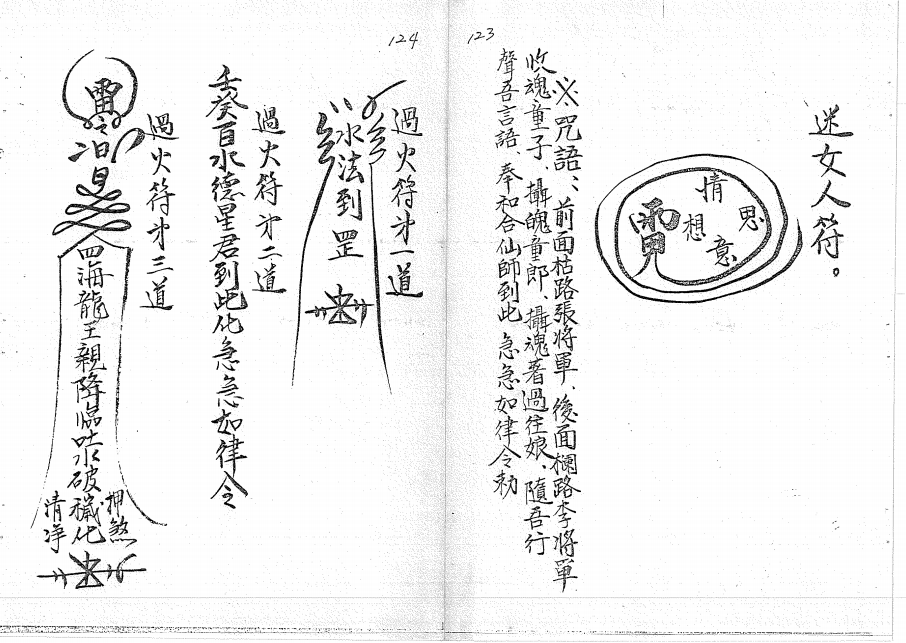 123
迷女人符。
情
思
想
意
※咒語:前面枯路張將軍、後面欄路李將軍
收魂童子、攝魄童郎、攝魂著過往娘、隨吾行
聲吾言語、奉和合仙師到此 急急如律令勅
124
過火符第一道
水法到罡
過火符第二道
壬癸百水德星君到此化急急如律令
過火符第三道
四海龍王親降臨吐水破穢化
押煞
清净